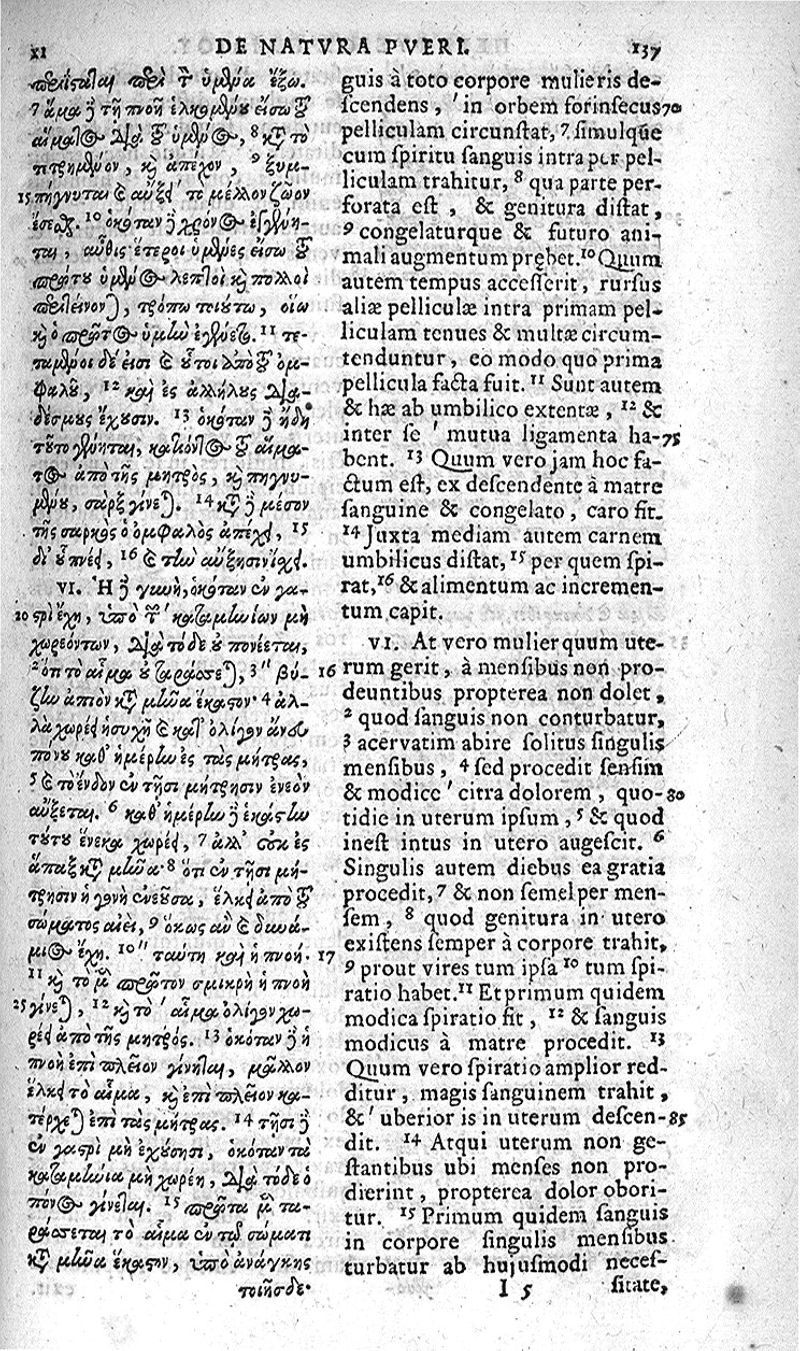 XI DE NATVRA PVERI. 137
περιΐσταται περὶ τὸν ὑμένα ἔξω.
7 ἅμα δὲ τῇ πνοῇ ἑλκομένου εἴσω τοῦ
αἵματος διὰ τοῦ ὑμένος, 8 κατὰ τὸ
τετρημένον, καὶ ἀπέχον, 9 ξυμ-
15 πήγνυται καὶ αὔξει τὸ μέλλον ζῶον
ἔσεσθαι. 10 ὁκόταν δὲ χρόνος ἐγγένη-
ται, αὖθις ἕτεροι ὑμένες εἴσω τοῦ
πρώτου ὑμένος λεπτοὶ καὶ πολλοὶ
περιτείνονται, τρόπῳ τοιούτῳ, οἵῳ
καὶ ὁ πρῶτος ὑμὴν ἐγένετο. 11 τε-
ταμένοι δέ εἰσι καὶ οὗτοι ἀπὸ τοῦ ὀμ-
φαλοῦ, 12 καὶ ἐς ἀλλήλους δια-
δέσμους ἔχουσιν. 13 ὁκόταν δὲ ἤδη
τοῦτο γένηται, κατιόντος τοῦ αἵμα-
τος ἀπὸ τῆς μητρὸς, καὶ πηγνυ-
μένου, σὰρξ γίνεται. 14 κατὰ δὲ μέσον
τῆς σαρκὸς ὁ ὀμφαλὸς ἀπέχει, 15
δι' οὗ πνέει, 16 καὶ τὴν αὔξησιν ἴσχει.
VI. Ἡ δὲ γυνὴ, ὁκόταν ἐν γα-
20 στρὶ ἔχῃ, ὑπὸ τῶν ' καταμηνίων μὴ
χωρεόντων, διὰ τόδε οὐ πονέεται,
2 ὅτι τὸ αἷμα οὐ ταράσσεται, 3 '' βύ- 16
ζην ἀπιὸν κατὰ μῆνα ἕκαστον· 4 ἀλ-
λὰ χωρέει ἡσυχῇ καὶ κατ' ὀλίγον ἄνευ
πόνου καθ' ἡμέρην ἐς τὰς μήτρας,
5 καὶ τὸ ἔνδον ἐν τῇσι μήτρῃσιν ἐνεὸν
αὔξεται. 6 καθ' ἡμέρην δὲ ἑκάστην
τούτου ἕνεκα χωρέει, 7 ἀλλ' οὐκ ἐς
ἅπαξ κατὰ μῆνα· 8 ὅτι ἐν τῇσι μή-
τρῃσιν ἡ γονὴ ἐνεοῦσα, ἕλκει ἀπὸ τοῦ
σώματος αἰεὶ, 9 ὅκως ἂν καὶ δυνά-
μιος ἔχῃ. 10 '' ταύτῃ καὶ ἡ πνοή. 17
11 καὶ τὸ μὲν πρῶτον σμικρὴ ἡ πνοὴ
25 γίνεται, 12 καὶ τὸ ' αἷμα ὀλίγον χω-
ρέει ἀπὸ τῆς μητρός. 13 ὁκόταν δὲ ἡ
πνοὴ ἐπὶ πλεῖον γίνηται, μᾶλλον
ἕλκει τὸ αἷμα, καὶ ἐπὶ πλεῖον κα-
τέρχεται ἐπὶ τὰς μήτρας. 14 τῇσι δὲ
ἐν γαστρὶ μὴ ἐχούσῃσι, ὁκόταν τὰ
καταμήνια μὴ χωρέῃ, διὰ τόδε ὁ
πόνος γίνεται. 15 πρῶτα μὲν τα-
ράσσεται τὸ αἷμα ἐν τῷ σώματι
κατὰ μῆνα ἕκαστον, ὑπὸ ἀνάγκης
τοιῆσδε·
guis à toto corpore mulieris de-
scendens, ' in orbem forinsecus 70
pelliculam circunstat, 7 simulque
cum spiritu sanguis intra per pel-
liculam trahitur, 8 qua parte per-
forata est, & genitura distat,
9 congelaturque & futuro ani-
mali augmentum prębet. 10 Quum
autem tempus accesserit, rursus
aliæ pelliculæ intra primam pel-
liculam tenues & multæ circum-
tenduntur, eo modo quo prima
pellicula facta fuit. 11 Sunt autem
& hæ ab umbilico extentæ, 12 &
inter se ' mutua ligamenta ha- 75
bent. 13 Quum vero jam hoc fa-
ctum est, ex descendente à matre
sanguine & congelato, caro fit.
14 Juxta mediam autem carnem
umbilicus distat, 15 per quem spi-
rat, 16 & alimentum ac incremen-
tum capit.
VI. At vero mulier quum ute-
rum gerit, à mensibus non pro-
deuntibus propterea non dolet,
2 quod sanguis non conturbatur,
3 acervatim abire solitus singulis
mensibus, 4 sed procedit sensim
& modice ' citra dolorem, quo- 80
tidie in uterum ipsum, 5 & quod
inest intus in utero augescit. 6
Singulis autem diebus ea gratia
procedit, 7 & non semel per men-
sem, 8 quod genitura in utero
existens semper à corpore trahit,
9 prout vires tum ipsa 10 tum spi-
ratio habet. 11 Et primum quidem
modica spiratio fit, 12 & sanguis
modicus à matre procedit. 13
Quum vero spiratio amplior red-
ditur, magis sanguinem trahit,
& ' uberior is in uterum descen- 85
dit. 14 Atqui uterum non ge-
stantibus ubi menses non pro-
dierint, propterea dolor obori-
tur. 15 Primum quidem sanguis
in corpore singulis mensibus
turbatur ab hujusmodi neces-
I 5 sitate,